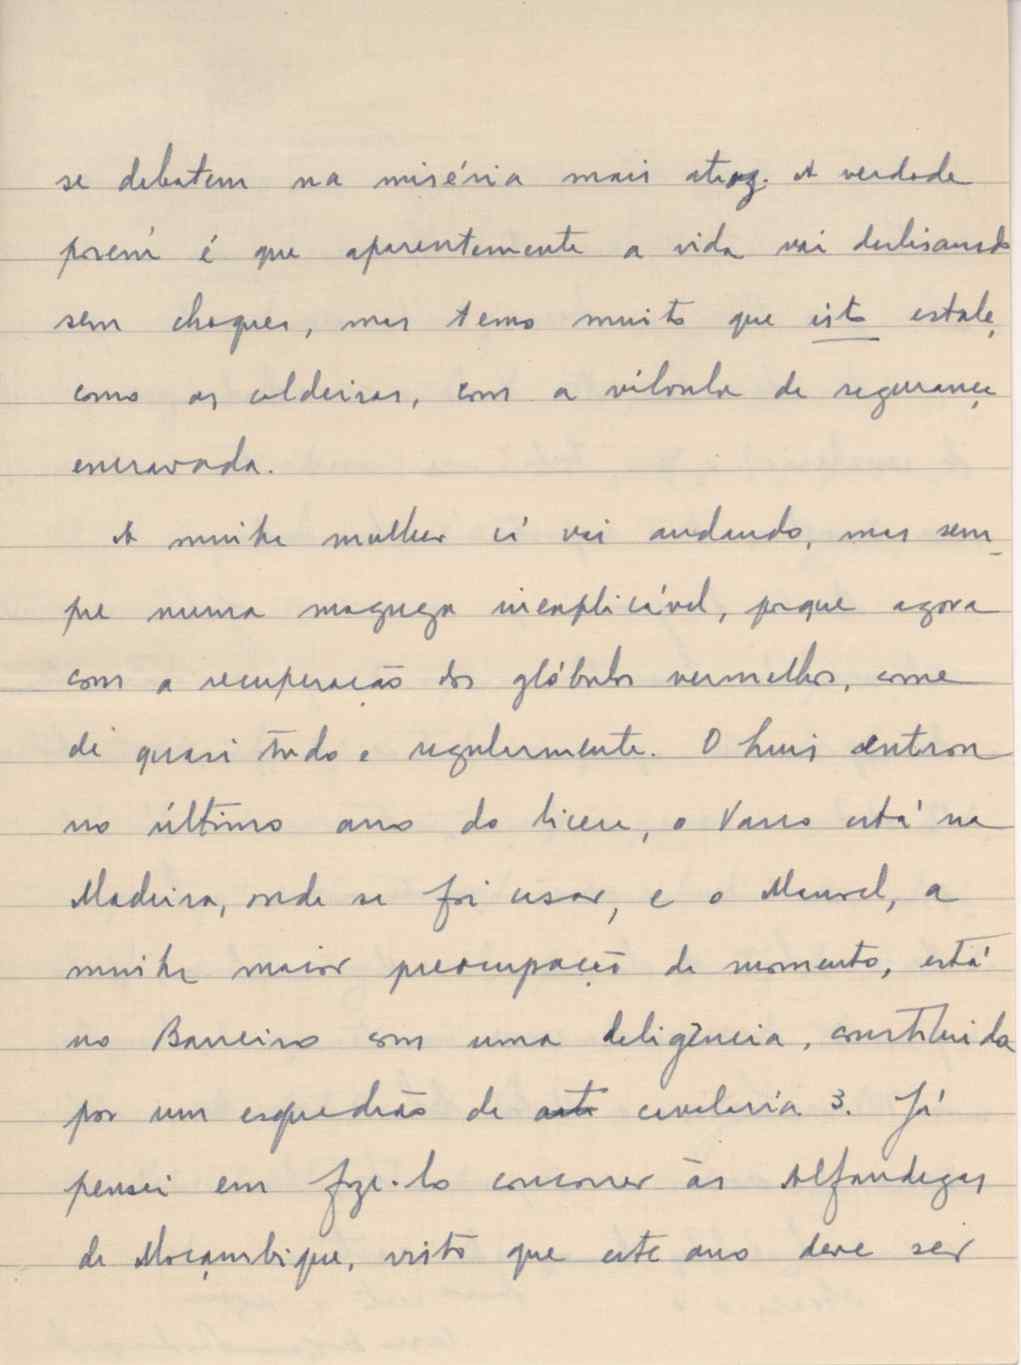 se debatem na miséria mais atroz. A verdade
porém é que aparentemente a vida vai deslisando
sem choques, mas temo muito que isto estale,
como as caldeiras, com a válvula de segurança
encravada.
A minha mulher cá vai andando, mas sem-
pre numa magreza inexplicável, porque agora
com a recuperação dos glóbulos vermelhos, come
de quasi tudo e regularmente. O Luis entrou
no último ano do liceu, o Vasco está na
Madeira, onde se foi casar, e o Manuel, a
minha maior preocupação de momento, está
no Barreiro com uma deligência, constituida
por um esquadrão de cavalaria 3. Já
pensei em faze-lo concorrer às Alfandegas
de Moçambique, visto que este ano deve ser